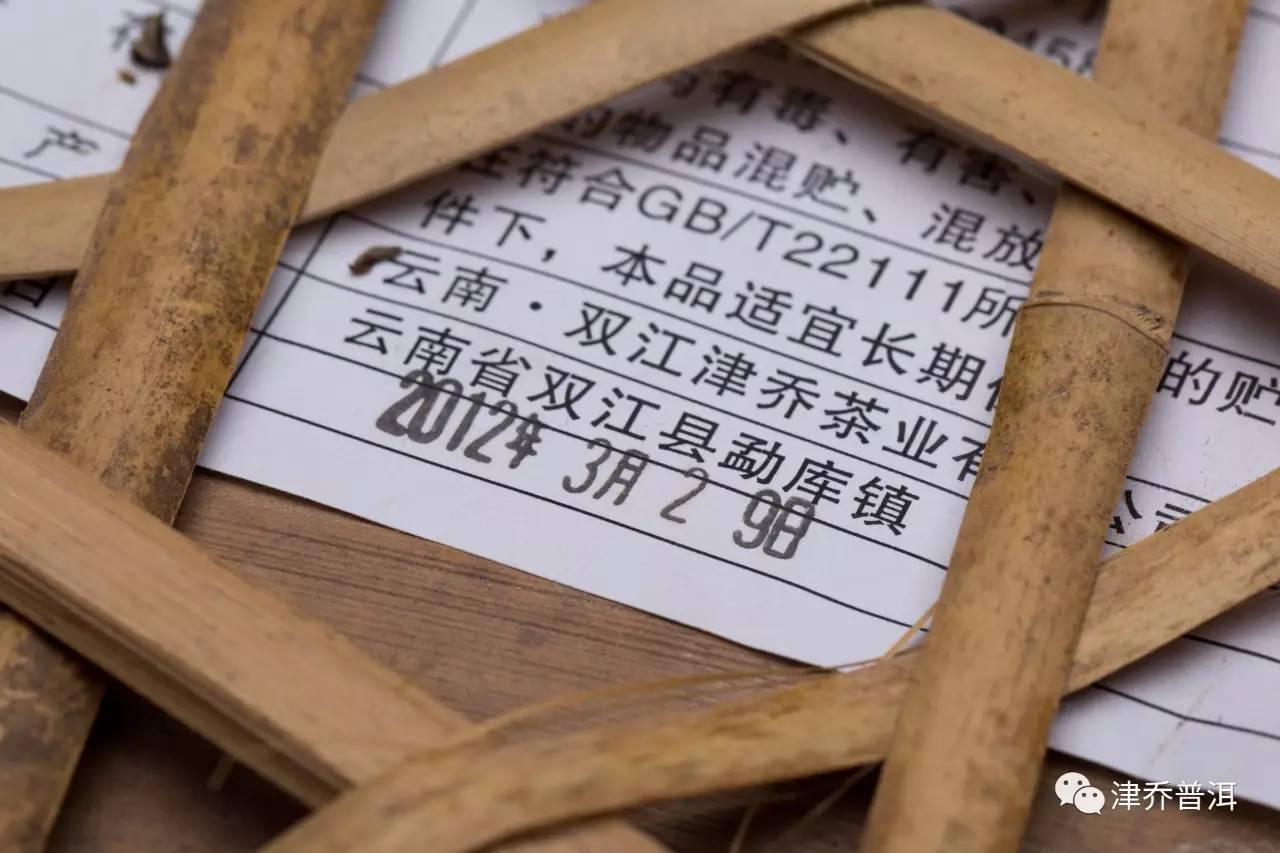 产
有毒、有害、
的物品混贮、混放
符合GB/T22111所
件下，本品适宜长期
的贮
云南·双江津乔茶业有
公司
云南省双江县勐库镇
2012年 3月 2 9日
津乔普洱